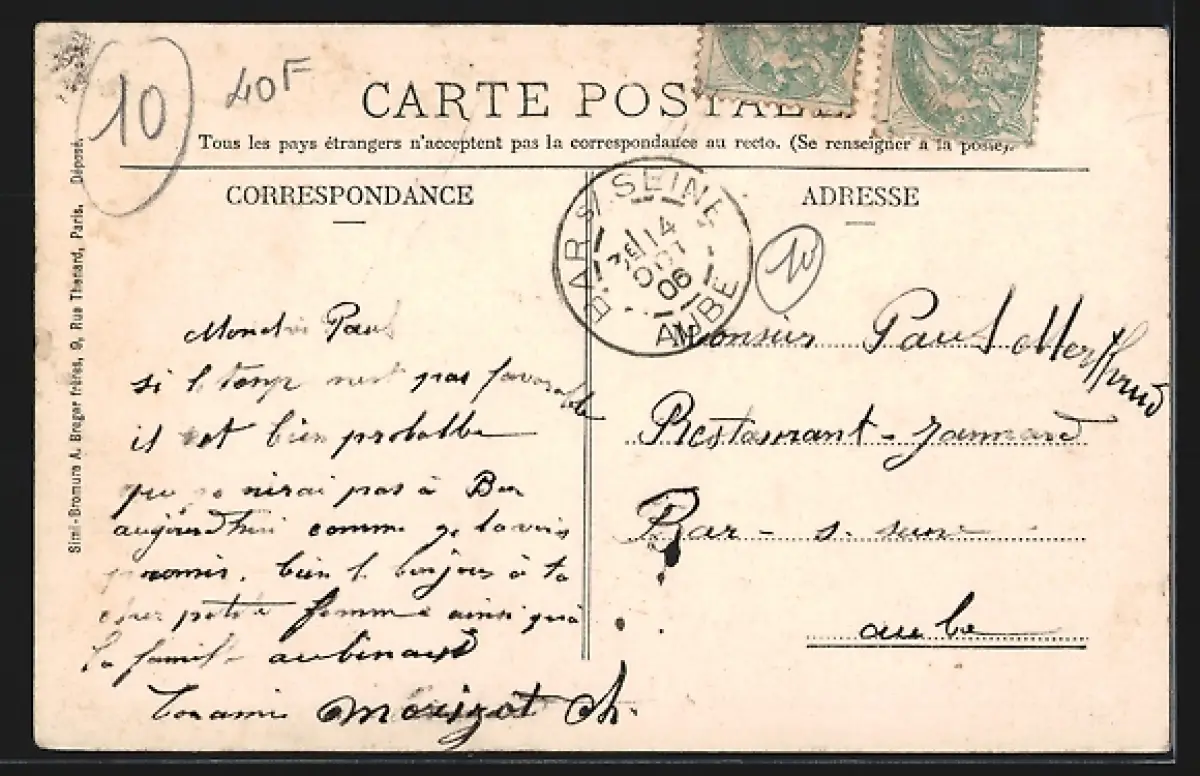 10
40F
CARTE POSTALE
Tous les pays étrangers n'acceptent pas la correspondance au recto. (Se renseigner à la poste).
CORRESPONDANCE
ADRESSE
Simi-Bromure A. Breger frères, 9, Rue Thenard, Paris. Déposé.
BAR S/ SEINE
14
OCT
06
AUBE
10
Mon Paul
si le temp nest pas favorable
il est bien probable
que je nirai pas à Bar
aujourd'hui comme je tavais
promis. bien le bonjour à ta
petite femme ainsi qu'à
la famille
ton ami Morizot Ch.
Monsieur Paul
Restaurant - Jannard
Bar - s. seine
aube